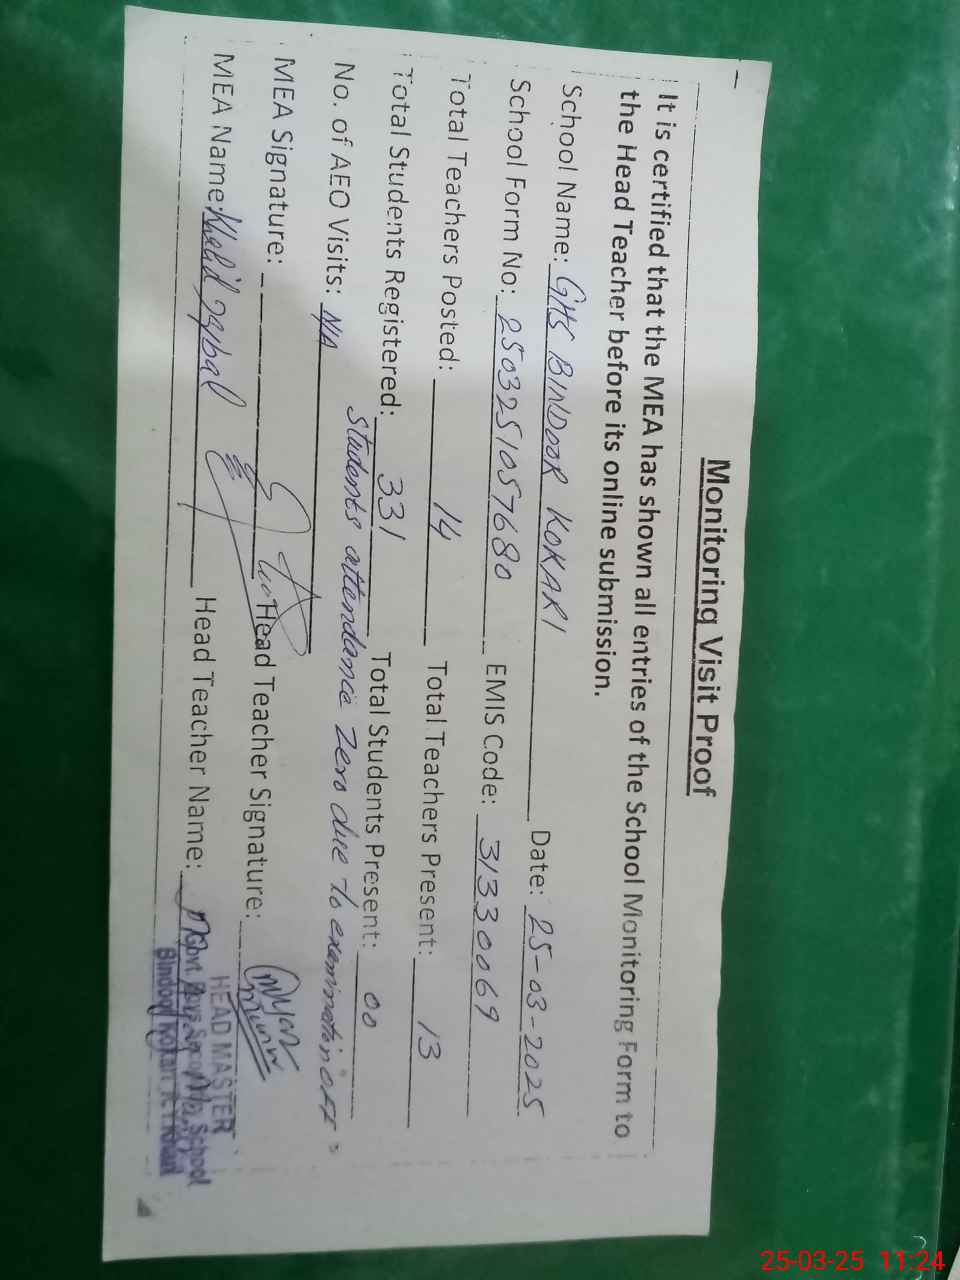 Monitoring Visit Proof
It is certified that the MEA has shown all entries of the School Monitoring Form to
the Head Teacher before its online submission.
School Name: GHS BINDOOR KOKARI Date: 25-03-2025
School Form No: 2503251057680 EMIS Code: 31330069
Total Teachers Posted: 14 Total Teachers Present: 13
Total Students Registered: 331 Total Students Present: 00
Students attendance zero due to examination
No. of AEO Visits: N/A
MEA Signature: Head Teacher Signature:
MEA Name: Khalid Iqbal Head Teacher Name:
HEAD MASTER
Govt. School
Bindoor
25-03-25 11:24